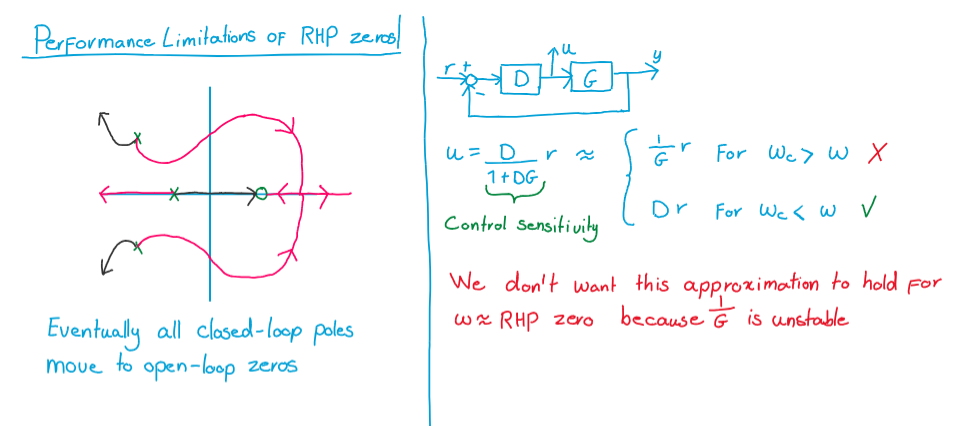 Performance Limitations of RHP zeros
Eventually all closed-loop poles
move to open-loop zeros
r + - D u G y
u = D/(1+DG) r ≈ { 1/G r For ωc > ω X
Dr For ωc < ω ✓
Control sensitivity
We don't want this approximation to hold for
ω ≈ RHP zero because 1/G is unstable